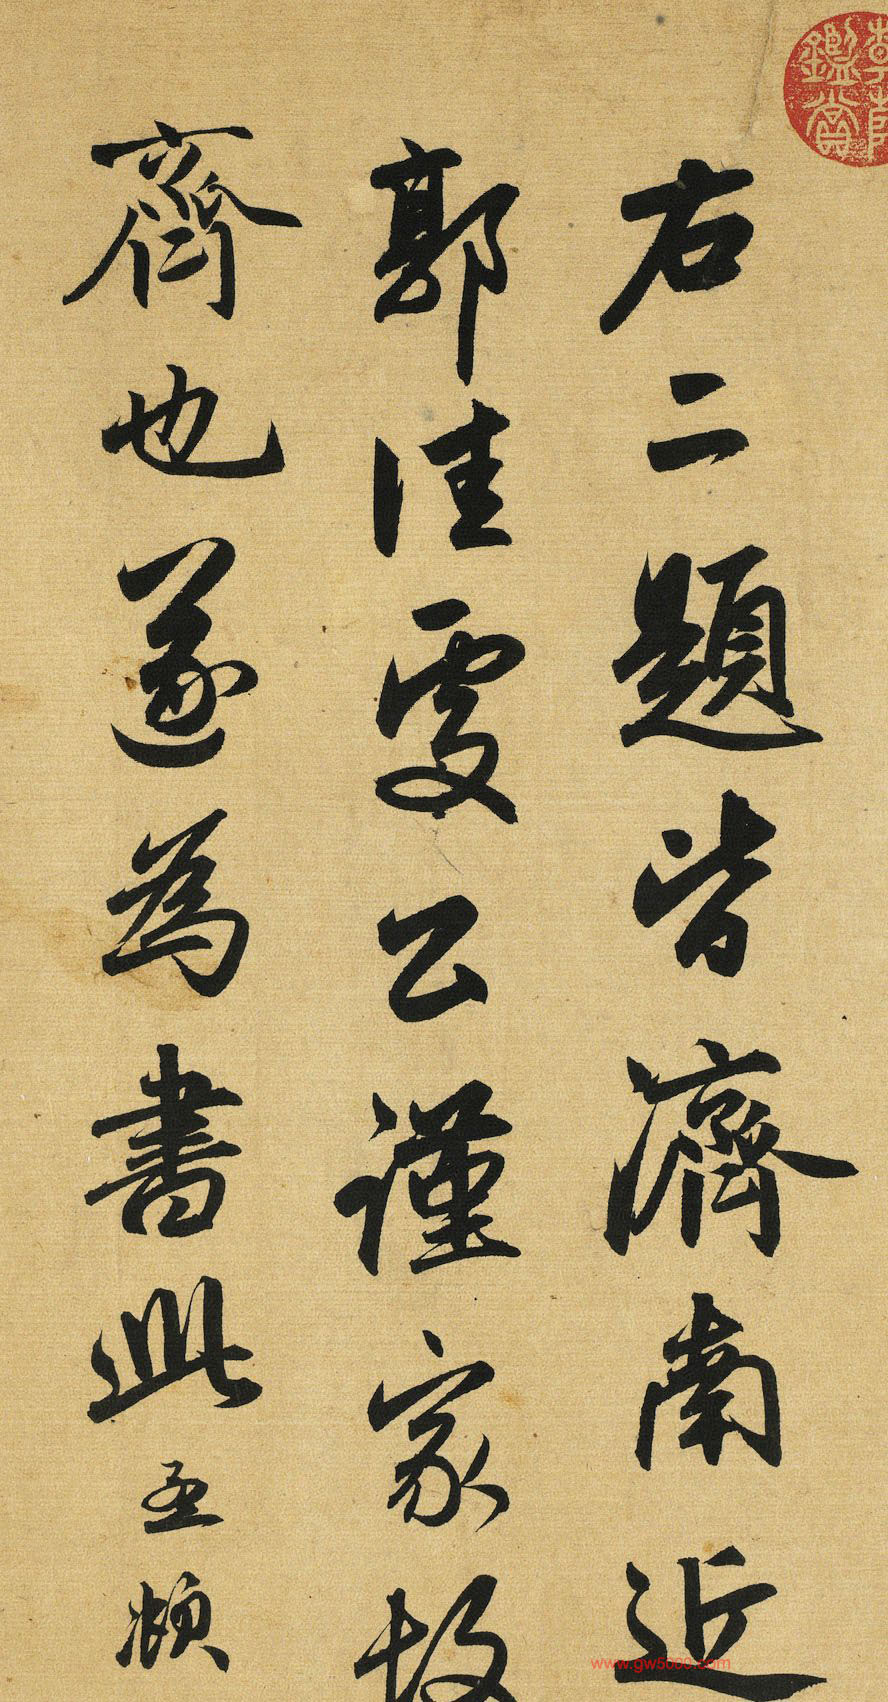 右二題皆濟南近
郭佳處公謹家故
齊也遂為書此孟頫
鑑賞
www.gw5000.com